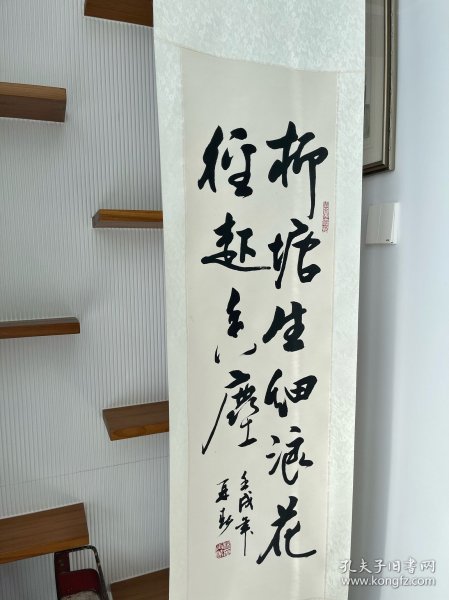 柳塘生细浪花
径起香尘
壬戌年
孔夫子旧书网
www.kongfz.com